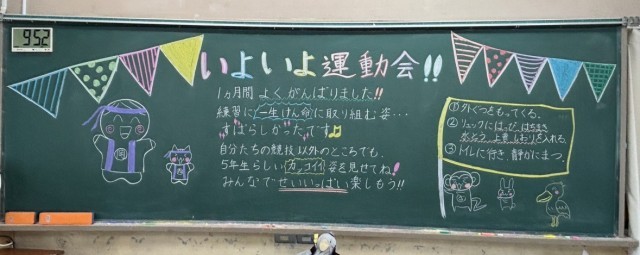 9:52
いよいよ運動会!!
1ヵ月間 よくがんばりました!!
練習に一生けん命に取り組む姿…
すばらしかったです♫
自分たちの競技以外のところでも、
5年生らしい カッコイイ 姿を見せてね!
みんなで せいいっぱい 楽しもう!!
①外ぐつをもってくる。
②リュックにはっぴ、はちまき
水とう、上着、しおりを入れる。
③トイレに行き、静かにまつ。